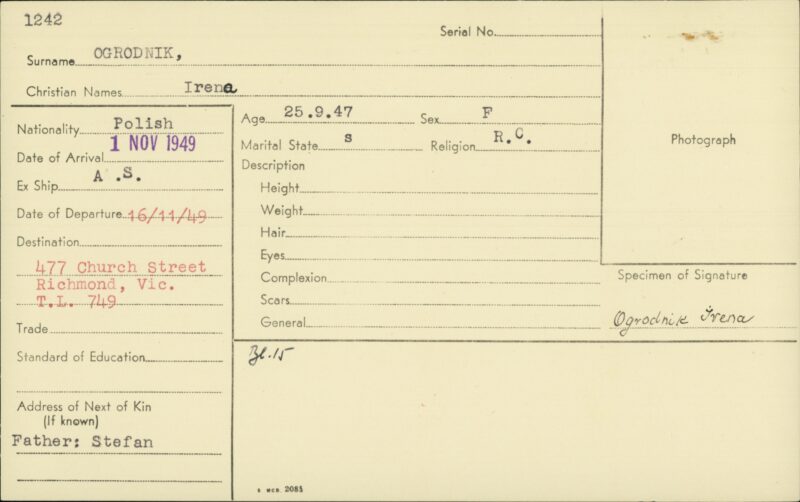 1242
Serial No.
Surname OGRODNIK,
Christian Names Irena
Nationality Polish
Date of Arrival 1 NOV 1949
Ex Ship A .S.
Date of Departure 16/11/49
Destination
477 Church Street
Richmond, Vic.
T.L. 749
Trade
Standard of Education
Address of Next of Kin
(If known)
Father: Stefan
Age 25.9.47 Sex F
Marital State s Religion R.C.
Description
Height
Weight
Hair
Eyes
Complexion
Scars
General
Photograph
Specimen of Signature
Ogrodnik Irena
Bl.15
2085